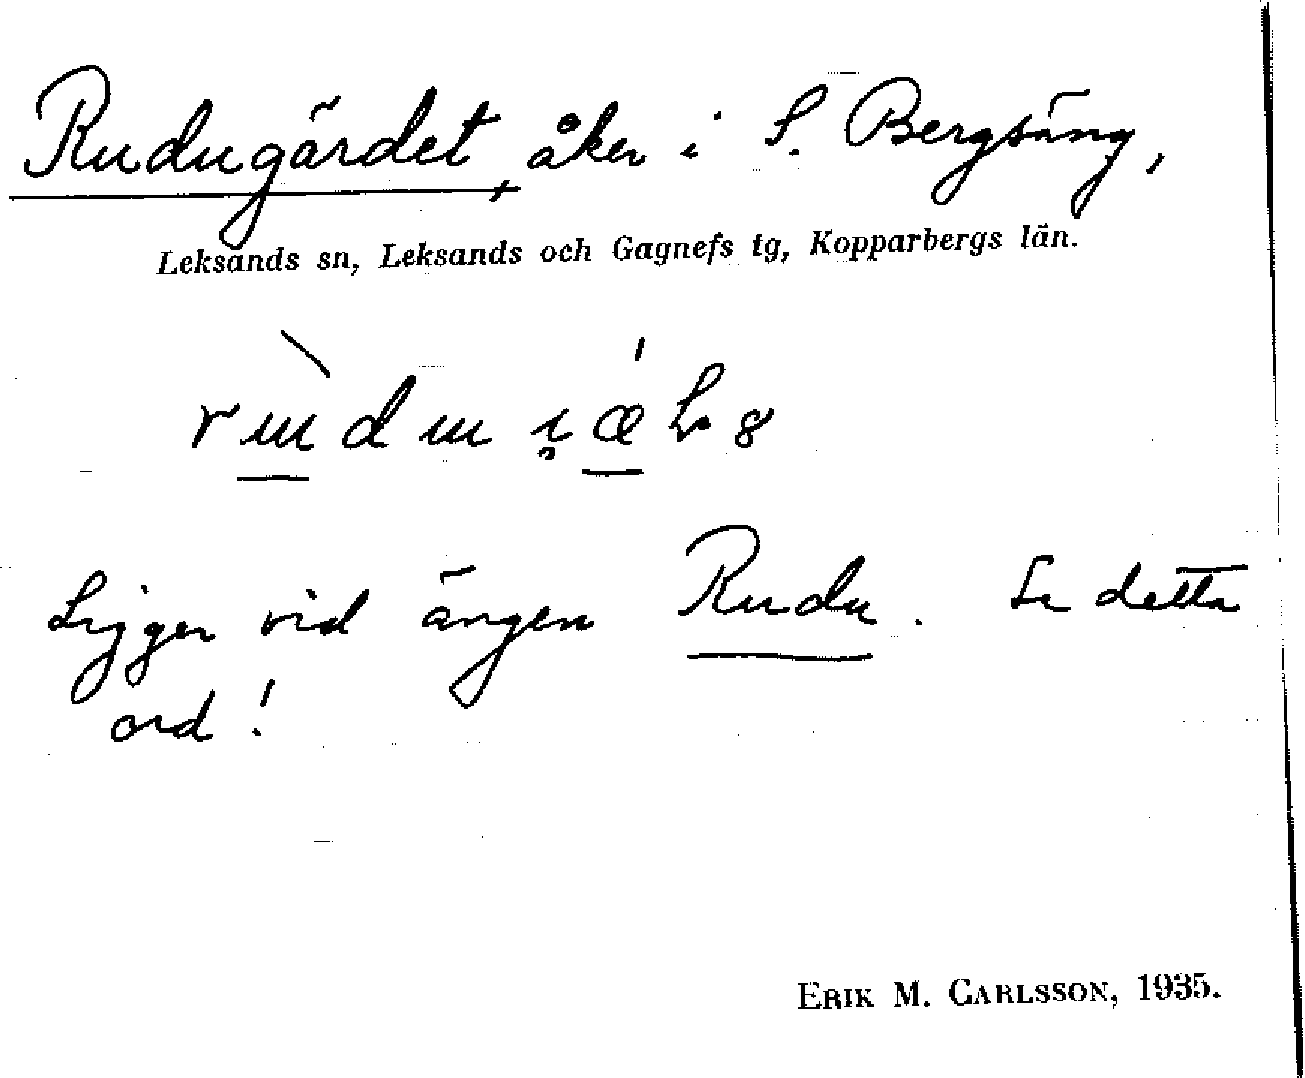 Rudugärdet, åker i S. Bergsäng,
Leksands sn, Leksands och Gagnefs tg, Kopparbergs län.
Ligger vid ängen Rudu. Se detta
ord!
ERIK M. CARLSSON, 1935.